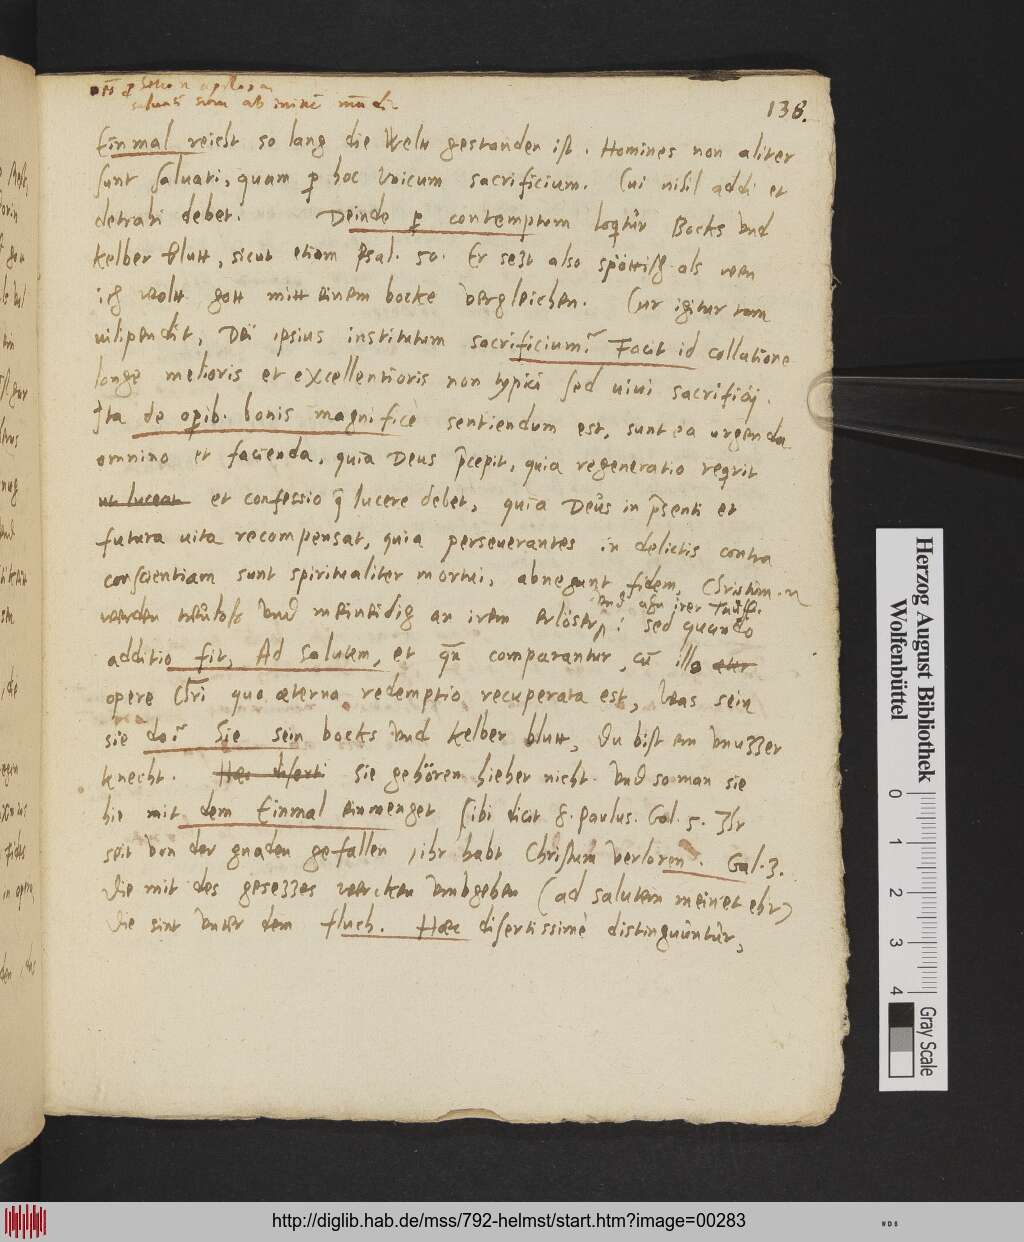 138.
Einmal reicht so lang die Welt gestanden ist. Homines non aliter
sunt saluati, quam p hoc vnicum sacrificium. Cui nihil addi et
detrahi debet. Deinde p contemptum loqitur Bocks vnd
kelber blutt, sicut etiam Psal. 50. Er sezt also spöttisch als wen
ich wolt gott mitt einem bocke vergleichen. Cur igitur tam
uilipendit, Dei ipsius institutum sacrificium? Facit id collatione
longe melioris et excellentioris non typici sed uiui sacrificij.
Ita de opib. bonis magnifice sentiendum est, sunt ea urgenda
omnino et facienda, quia Deus pcepit, quia regeneratio reqrit
ut luceat et confessio q lucere debet, quia Deus in psenti et
futura uita recompensat, quia perseuerantes in delictis contra
conscientiam sunt spiritualiter mortui, abnegant fidem, Christum
vnd irer
werden vnd meineidig an irem erlöser: sed quando
additio fit, Ad salutem, et qn comparantur, cu illo
opere Chri quo æterna redemptio recuperata est, Was sein
sie do? Sie sein bocks vnd kelber blutt, Du bist ein vnuzzer
knecht. Hæc diserti sie gehören hieher nicht. Vnd so man sie
hie mit dem Einmal einmenget sibi dicit S. Paulus. Gal. 5. Ihr
seit von der gnaden gefallen, ihr habt Christum verloren. Gal. 3.
Die mit des gesezzes wercken vmbgeben (ad salutem meinet ehr)
Die sint vnter dem fluch. Hæc disertissimè distinguuntur,
Herzog August Bibliothek
Wolfenbüttel
0 1 2 3 4
Gray Scale
http://diglib.hab.de/mss/792-helmst/start.htm?image=00283